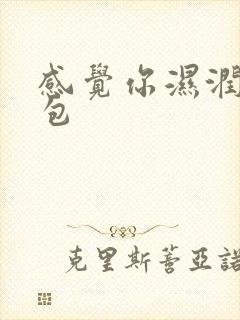 感覺你濕潤
包
克里斯蒼亞諾